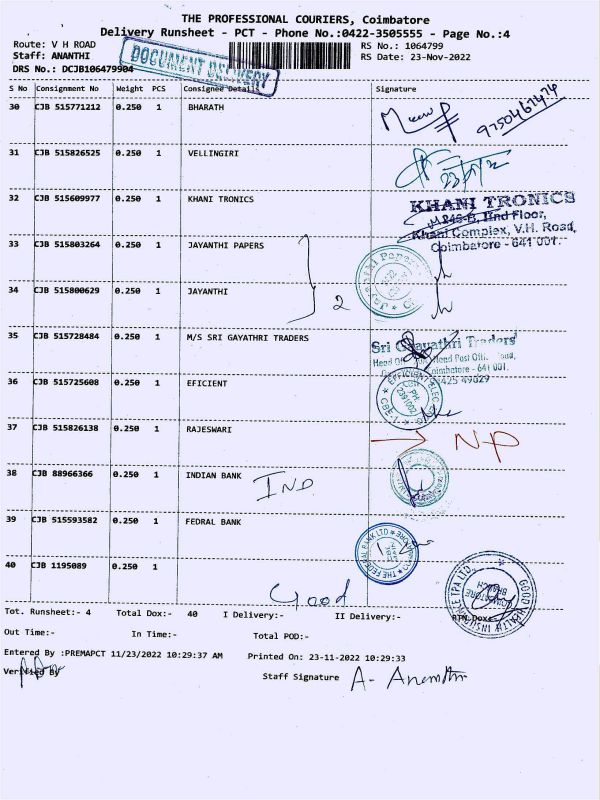 THE PROFESSIONAL COURIERS, Coimbatore
Delivery Runsheet - PCT - Phone No.:0422-3505555 - Page No.:4
Route: V H ROAD
RS No.: 1064799
Staff: ANANTHI
RS Date: 23-Nov-2022
DRS No.: DCJB106479904
DOCUMENT DELIVERY
S No Consignment No Weight PCS Consignee Details Signature
30 CJB 515771212 0.250 1 BHARATH
9750467474
31 CJB 515826525 0.250 1 VELLINGIRI
32 CJB 515609977 0.250 1 KHANI TRONICS
KHANI TRONICS
IInd Floor,
Khani Complex, V.H. Road,
Coimbatore - 641 001.
33 CJB 515803264 0.250 1 JAYANTHI PAPERS
34 CJB 515800629 0.250 1 JAYANTHI
2
35 CJB 515728484 0.250 1 M/S SRI GAYATHRI TRADERS
Sri Gayathri Traders
Head Post Office Road,
Coimbatore - 641 001.
36 CJB 515725608 0.250 1 EFICIENT
37 CJB 515826138 0.250 1 RAJESWARI
NP
38 CJB 88966366 0.250 1 INDIAN BANK
IND
39 CJB 515593582 0.250 1 FEDRAL BANK
THE FEDERAL BANK LTD
40 CJB 1195089 0.250 1
Good
Tot. Runsheet:- 4 Total Dox:- 40 I Delivery:- II Delivery:- RTN Dox:-
Out Time:- In Time:- Total POD:-
Entered By :PREMAPCT 11/23/2022 10:29:37 AM Printed On: 23-11-2022 10:29:33
Verified By
Staff Signature A- Ananthi